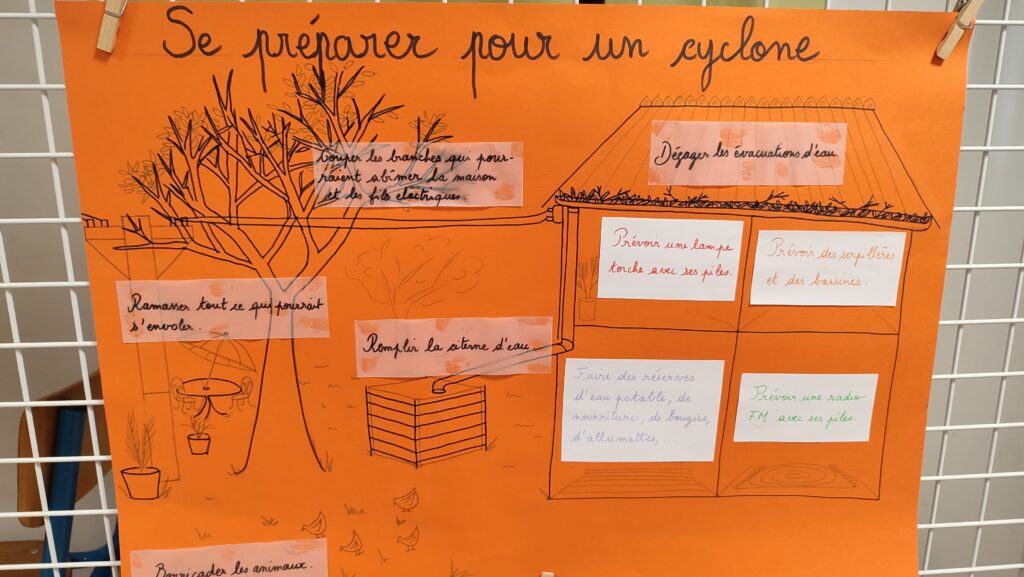 Se préparer pour un cyclone
Couper les branches qui pour-
raient abîmer la maison
et les fils électriques.
Dégager les évacuations d'eau.
Prévoir une lampe
torche avec ses piles.
Prévoir des serpillères
et des bassines.
Ramasser tout ce qui pourrait
s'envoler.
Remplir la citerne d'eau.
Faire des réserves
d'eau potable, de
nourriture, de bougies,
d'allumettes, ...
Prévoir une radio
FM avec ses piles.
Barricader les animaux.